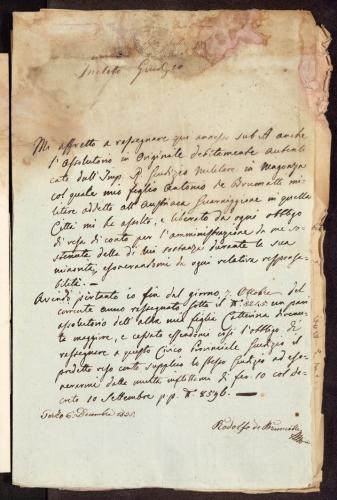 Inclito Giudizio
Mi affretto a rassegnare qui annesso sub A anche
l'Assolutorio in Originale debitamente autenti
cato dall' Imp. R. Giudizio Militare in Magonza
col quale mio figlio Antonio de Brumatti mi
litare addetto all' Austriaca Guarnigione in quella
Città mi ha assolto, e liberato da ogni obbligo
di resa di conto per l'amministrazione da me so
stenuta della di lui sostanza durante la sua
minorità, esonerandomi da ogni relativa responsa
bilità. —
Avendo pertanto io fin dal giorno 7 Ottobre del
corrente anno rassegnato sotto il N.° 8245 un pari
assolutorio dell' altra mia figlia Catterina divenu
ta maggiore, e cessato essendomi così l'obbligo di
rassegnare a questo Civico Provinciale Giudizio il
predetto reso conto supplico lo stesso Giudizio ad eso
nerarmi dalla multa inflittami di fni 10 col De
creto 10 Settembre p.p. N.° 8596. —
Decembre
Rodolfo de Brumatti